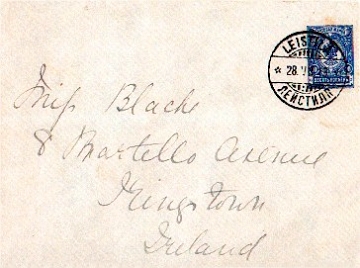 Miss Blacke
8 Martello Avenue
Kingstown
Ireland
LEISTILÄ
* 28. V
ЛЕЙСТИЛЯ